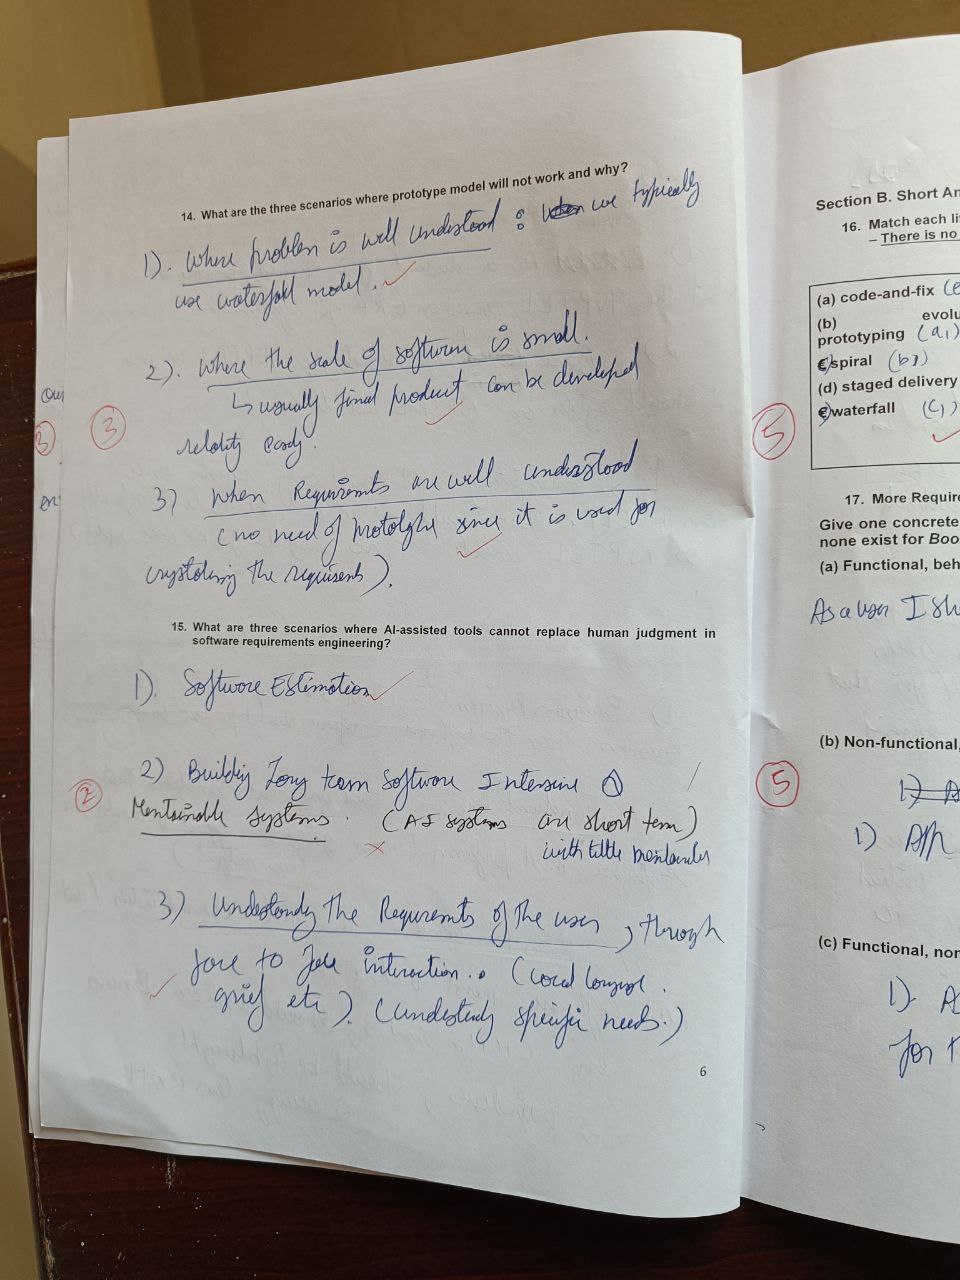 14. What are the three scenarios where prototype model will not work and why?
1). Where problem is well understood : we typically
use waterfall model.
2). Where the scale of software is small.
↳ usually final product can be developed
3
3) When Requirements are well understood
(no need of since it is used for
the
15. What are three scenarios where AI-assisted tools cannot replace human judgment in
software requirements engineering?
1). Software Estimation
2) Building long term Software
2
systems. (AI systems are short term)
with little
3) the Requirements of the user, through
face to face interaction..
etc). ( specific needs.)
6
3
Section B. Short An
16. Match each li
– There is no
(a) code-and-fix (e
(b) evolu
prototyping (a,)
spiral (b,)
(d) staged delivery
waterfall (c,)
5
17. More Require
Give one concrete
none exist for Boo
(a) Functional, beh
As a user I sh
(b) Non-functional,
5
1)
(c) Functional, non
1). A
for t